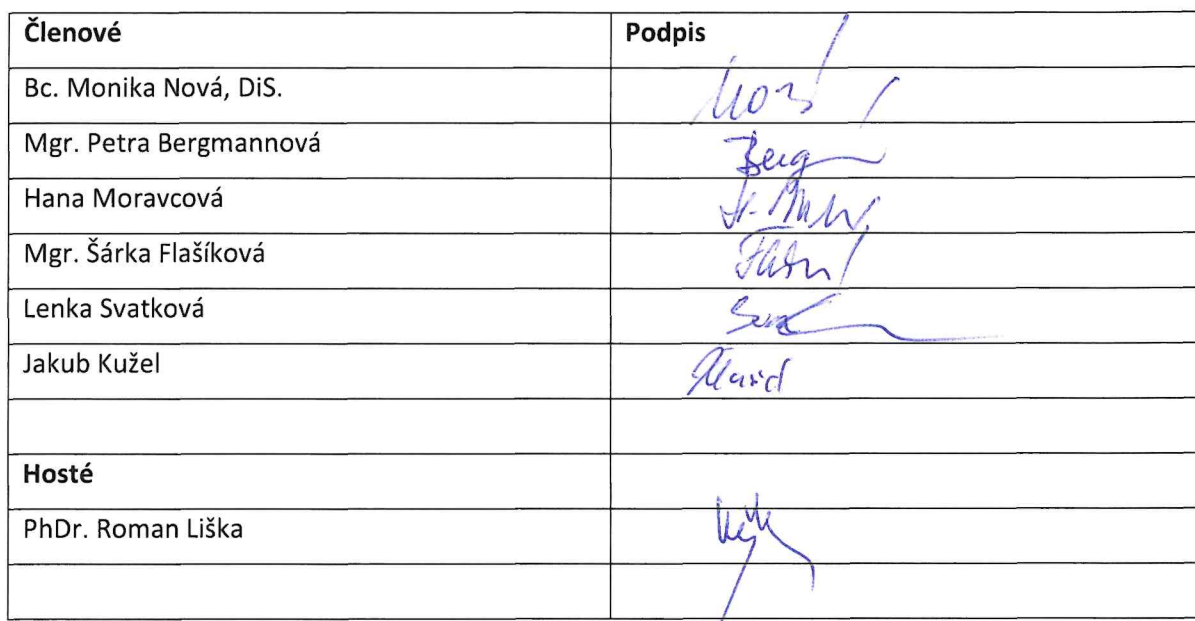 Členové Podpis
Bc. Monika Nová, DiS.
Mgr. Petra Bergmannová Berg
Hana Moravcová
Mgr. Šárka Flašíková
Lenka Svatková
Jakub Kužel
Hosté
PhDr. Roman Liška